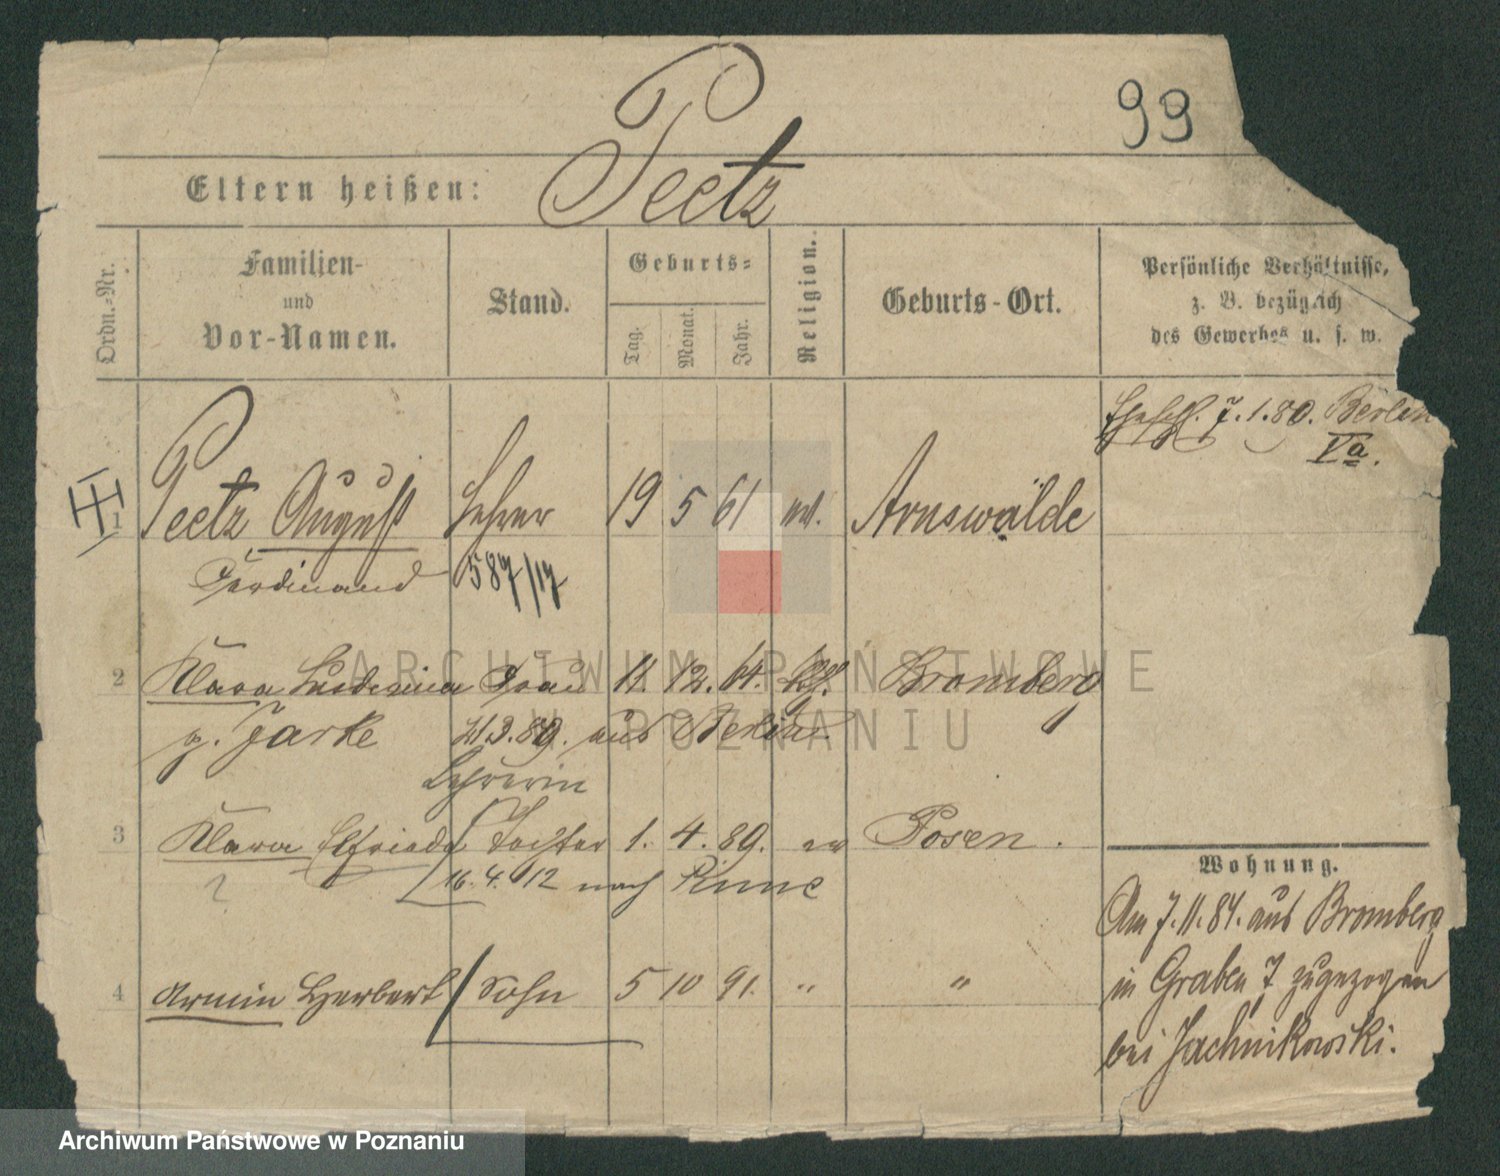 99
Eltern heißen: Peetz
Ordn.-Nr.
Familien-
und
Vor-Namen.
Stand.
Geburts-
Tag.
Monat.
Jahr.
Religion.
Geburts-Ort.
Persönliche Verhältnisse,
z. B. bezüglich
des Gewerbes u. s. w.
7.1.80. Berlin
Va.
1 Peetz August Lehrer 19 5 61 ev. Arnswalde
Ferdinand 587/17
2 Klara Frau 11. 12. 64. Bromberg
g. Jarke 21.3.89. aus Berlin
Lehrerin
3 Klara Elfriede Tochter 1. 4. 89. ev Posen.
? 16.4.12 nach Pinne
4 Armin Herbert Sohn 5 10 91. " "
Wohnung.
Am 7.11.84. aus Bromberg
in Graben 7 zugezogen
bei Jachnikowski.
ARCHIWUM PAŃSTWOWE
W POZNANIU
Archiwum Państwowe w Poznaniu